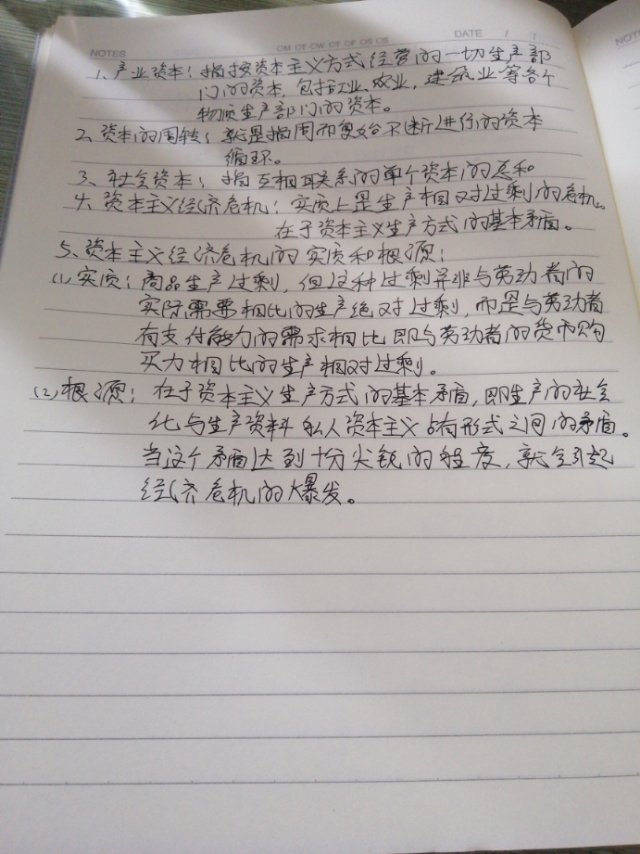 NOTES
DATE / /
1、产业资本：指按资本主义方式经营的一切生产部
门的资本，包括工业、农业，建筑业等各个
物质生产部门的资本。
2、资本的周转：就是指周而复始不断进行的资本
循环。
3、社会资本：指互相联系的单个资本的总和
4、资本主义经济危机：实质上是生产相对过剩的危机。
在于资本主义生产方式的基本矛盾。
5、资本主义经济危机的实质和根源：
(1)、实质：商品生产过剩，但这种过剩并非与劳动者的
实际需要相比的生产绝对过剩，而是与劳动者
有支付能力的需求相比即与劳动者的货币购
买力相比的生产相对过剩。
(2)、根源：在于资本主义生产方式的基本矛盾，即生产的社会
化与生产资料私人资本主义占有形式之间的矛盾。
当这个矛盾达到十分尖锐的程度，就会引起
经济危机的大爆发。